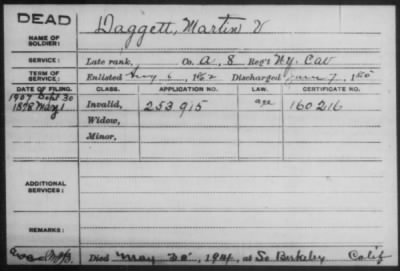 DEAD
NAME OF SOLDIER:
Daggett, Martin V
SERVICE:
Late rank, Co. A, 8 Reg't Ny. Cav
TERM OF SERVICE:
Enlisted Aug 6, 1862 Discharged June 7, 1865
DATE OF FILING. CLASS. APPLICATION NO. LAW. CERTIFICATE NO.
1907 Sept 30
1878 May 1 Invalid, 253 915 age 160216
Widow,
Minor,
ADDITIONAL SERVICES:
REMARKS:
Died May 30, 1914, at So Berkeley Calif